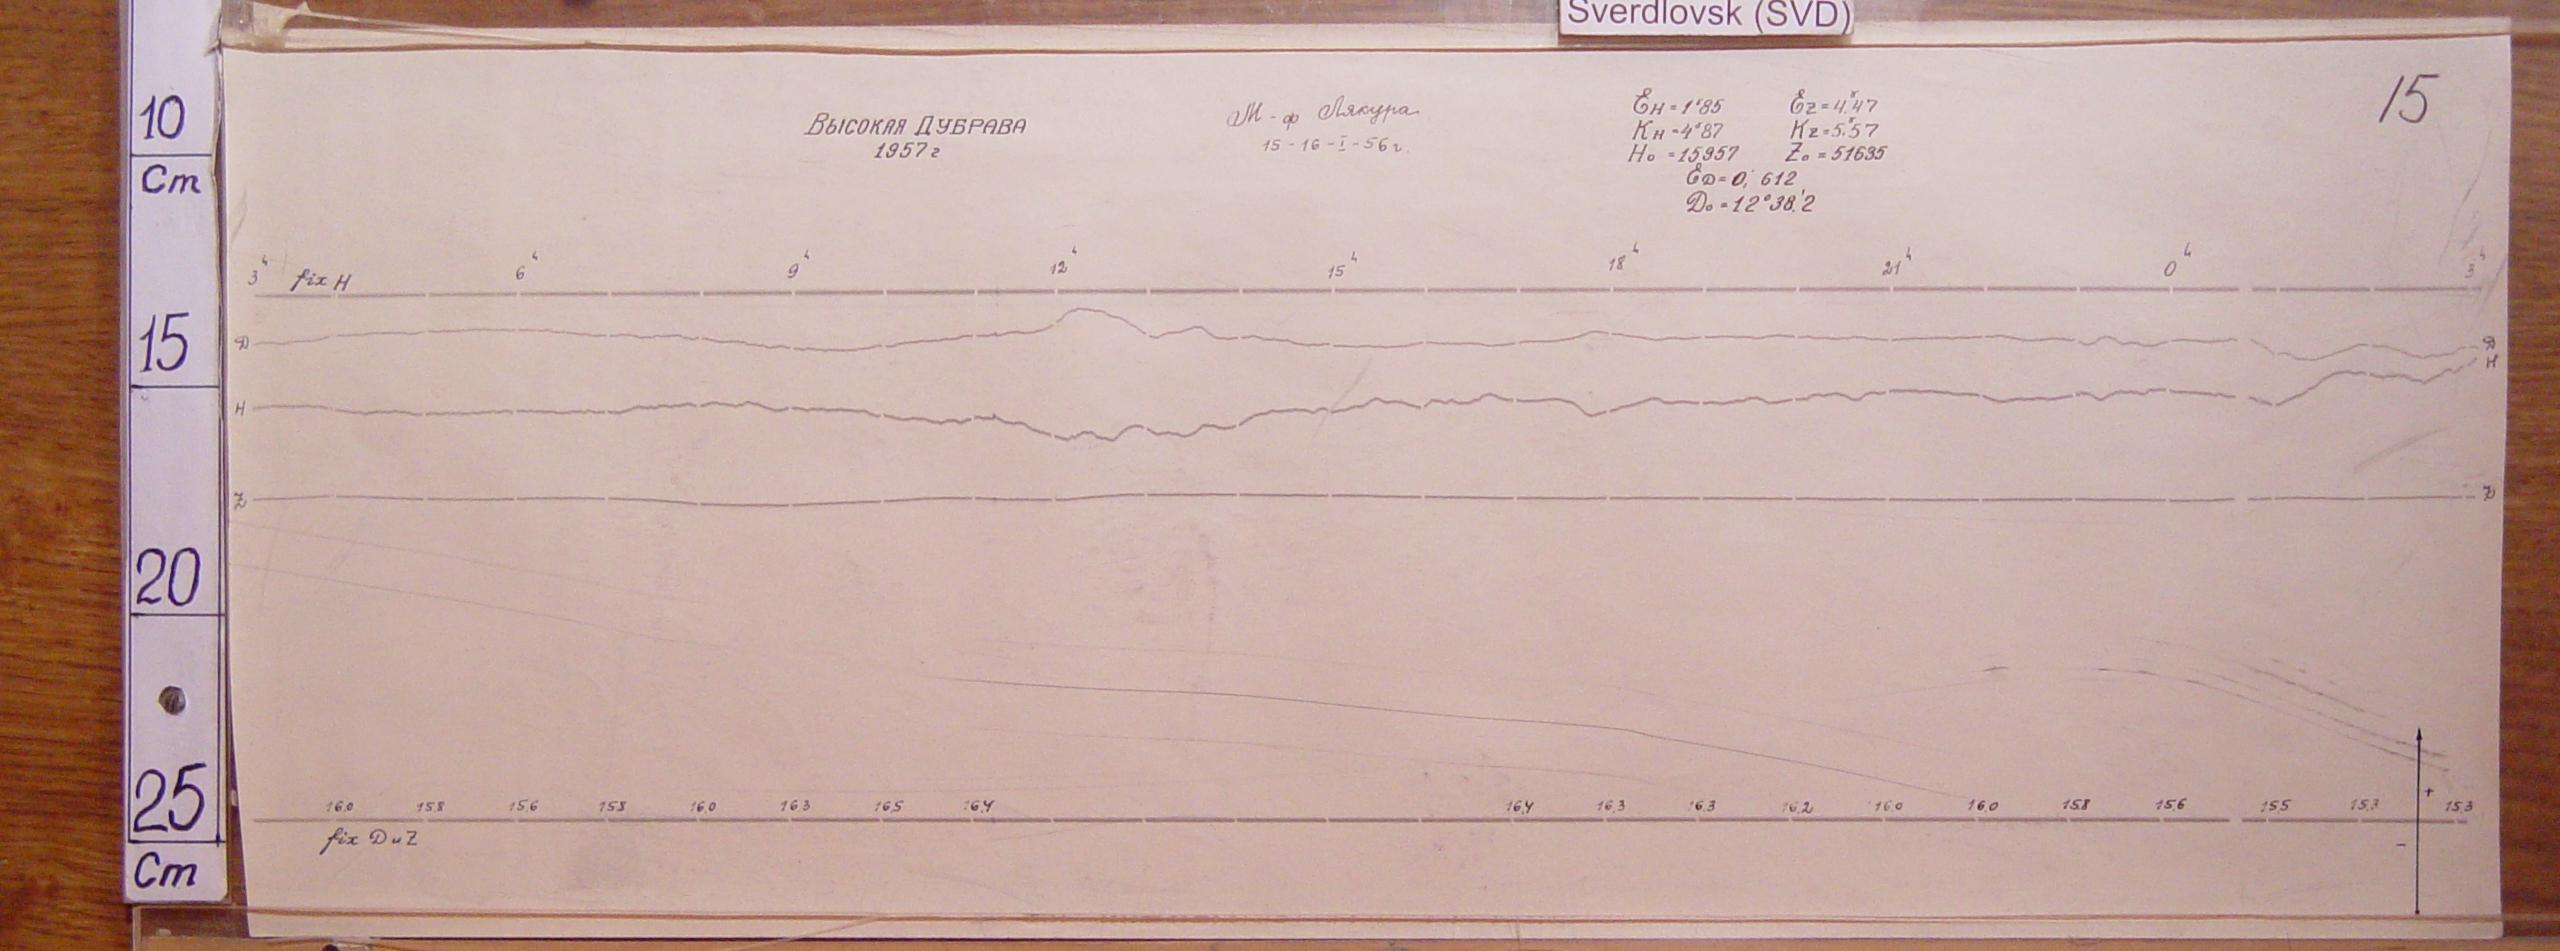 Sverdlovsk (SVD)
10
Cm
15
20
25
Cm
15
ВЫСОКАЯ ДУБРАВА
1957 г
М-ф Лякура
15-16-I-56 г.
Ɛн = 1ˠ85 Ɛz = 4ˠ,47
Kн = 4ˠ87 Kz = 5ˠ,57
H₀ = 15957 Z₀ = 51635
ƐD = 0,′612
D₀ = 12°38,′2
3ч 6ч 9ч 12ч 15ч 18ч 21ч 0ч 3ч
fix H
D D
H H
Z Z
16.0 15.8 15.6 15.8 16.0 16.3 16.5 16.4 16.4 16.3 16.3 16.2 16.0 16.0 15.8 15.6 15.5 15.3 15.3
+
fix D и Z
-